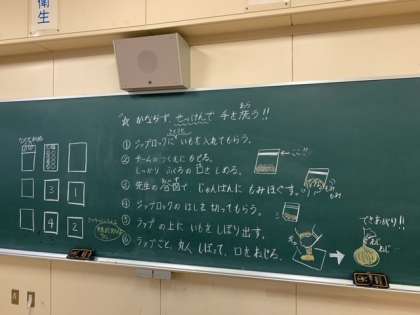 衛生
☆ かならず、せっけんで 手を洗う!!
あら
① ジップロックに いもを入れてもらう。
② チームのつくえに もどる。
しっかり ふくろの口を しめる。
③ 先生の合図で じゅんばんに もみほぐす。
あいず
④ ジップロックの はしを 切ってもらう。
⑤ ラップの上に いもを しぼり出す。
⑥ ラップごと、丸く しぼって、口をねじる。
できあがり!!
3
1
4
2